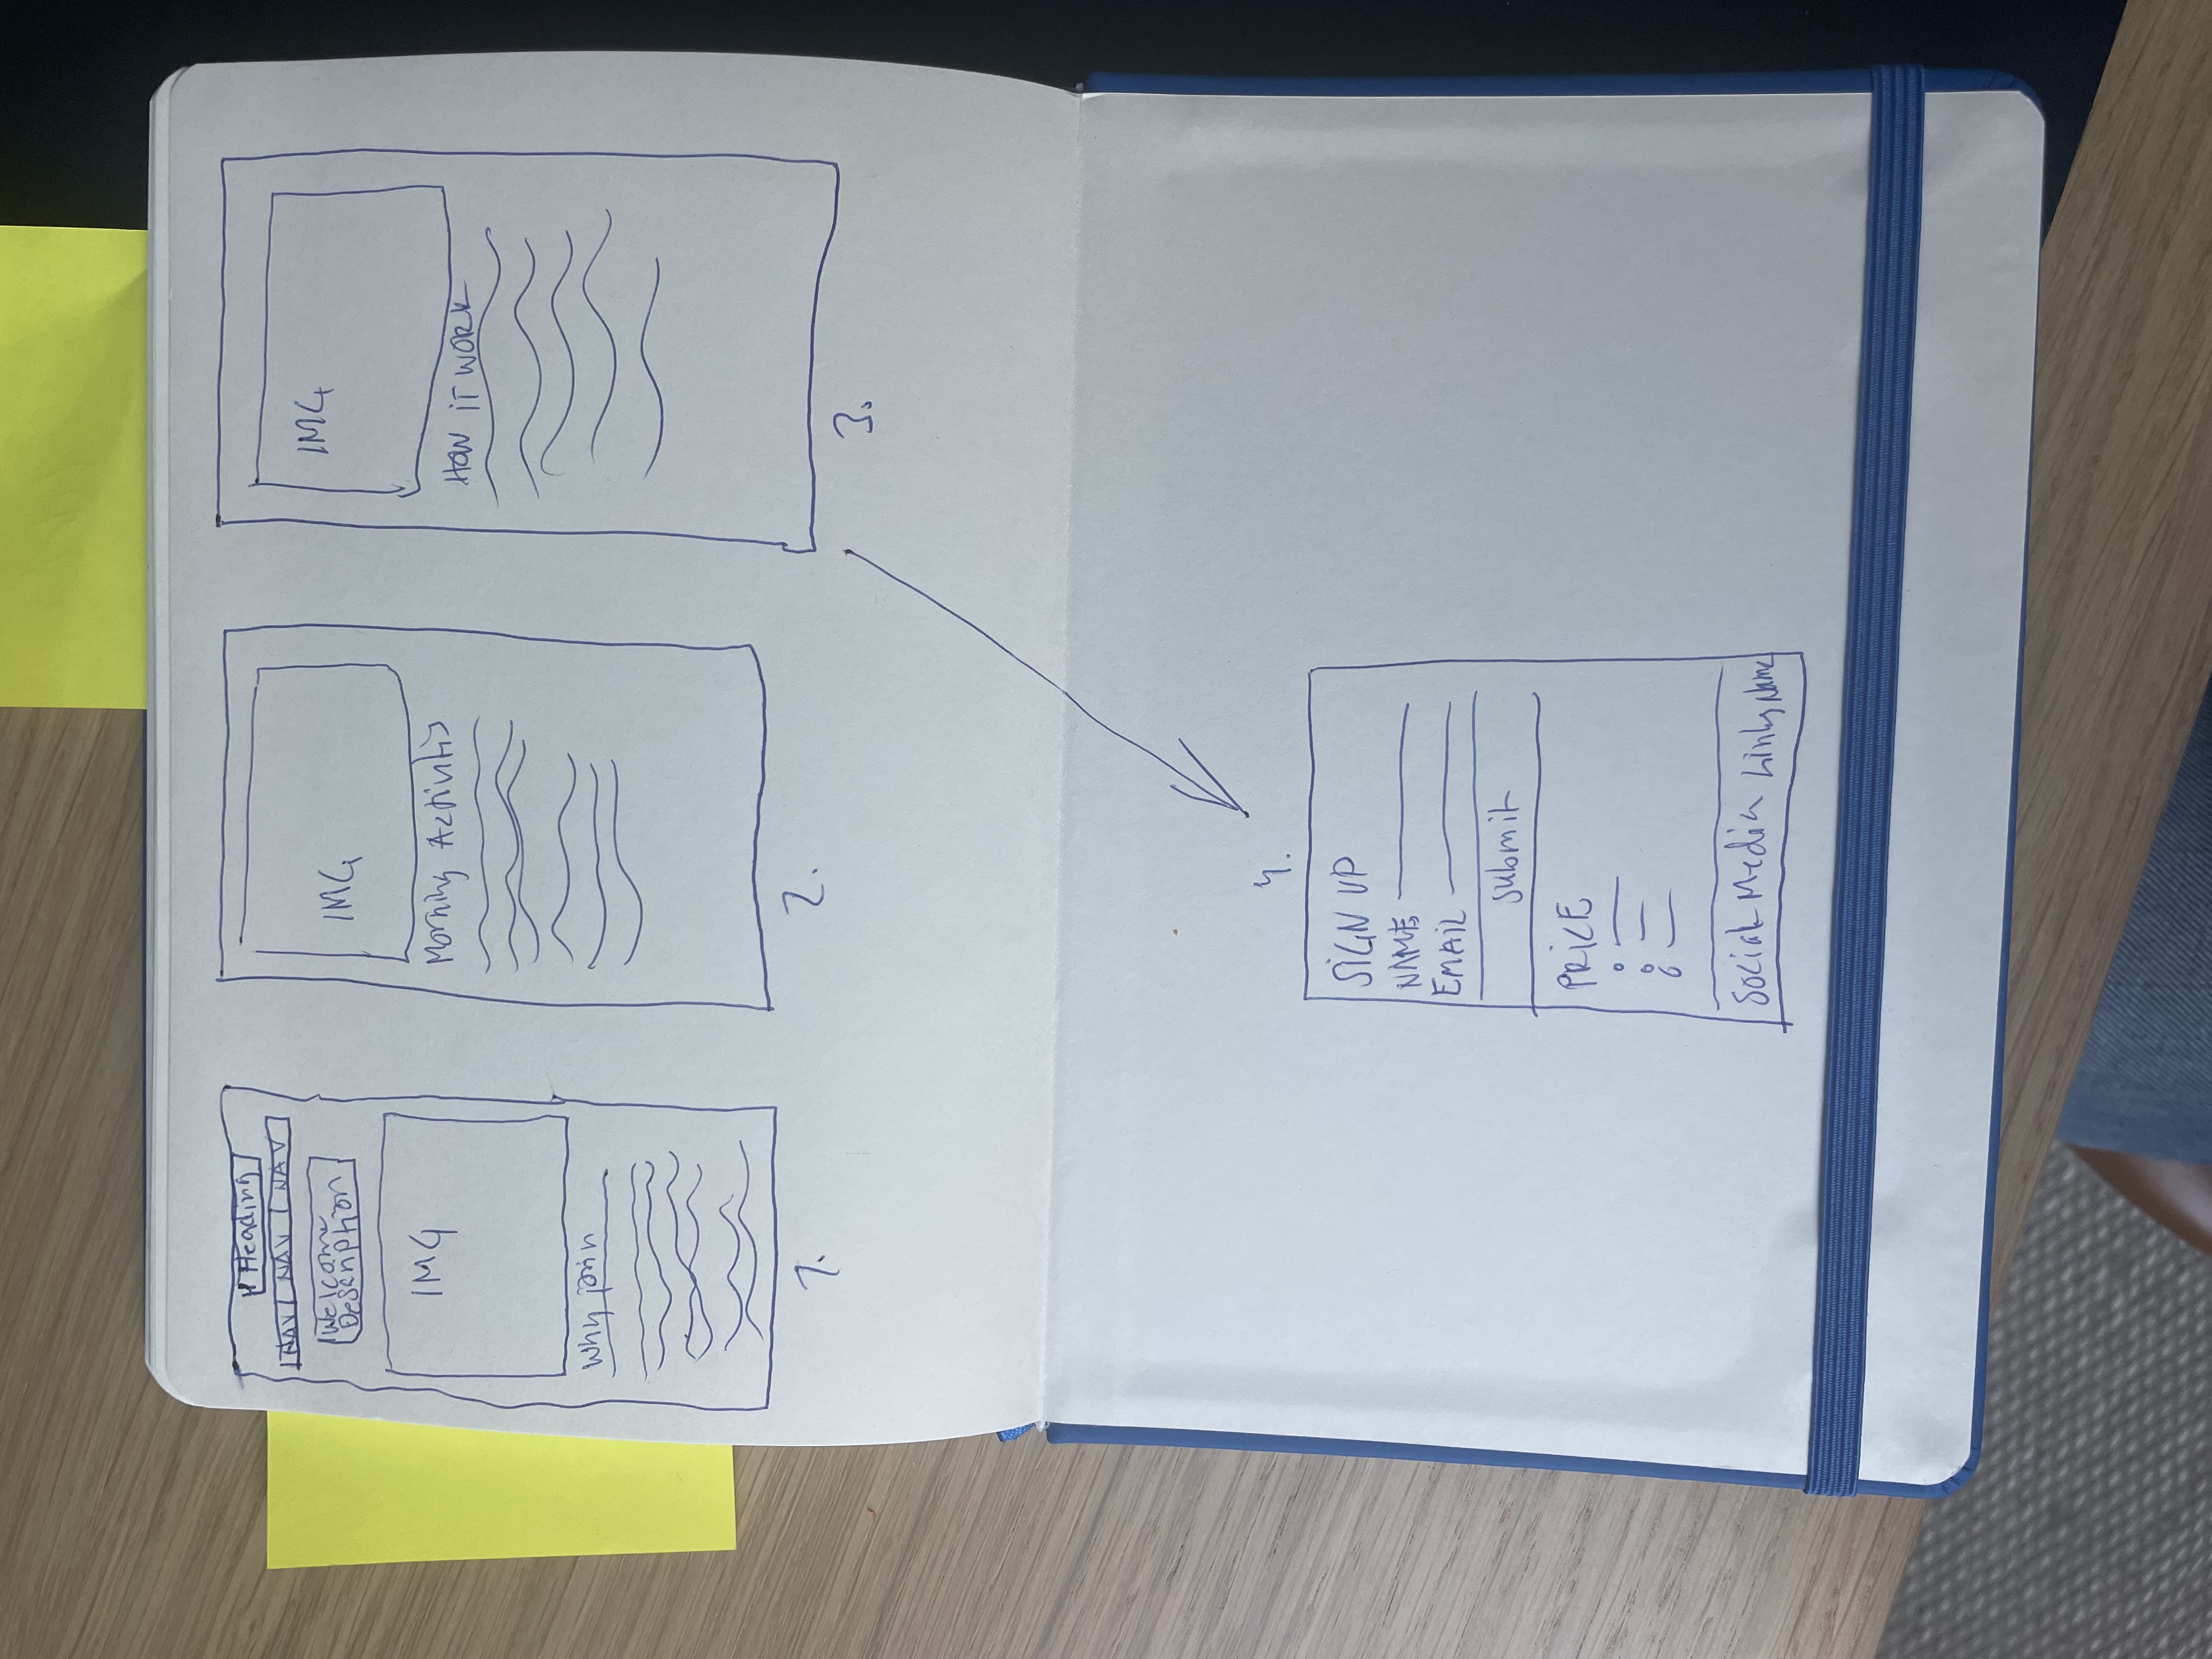 Heading
NAV NAV NAV
Welcome
Description
IMG
Why join
1.
IMG
Morning Activitis
2.
IMG
HOW IT WORK
3.
4.
SIGN UP
NAME
EMAIL
Submit
PRICE
Social Media Links Name